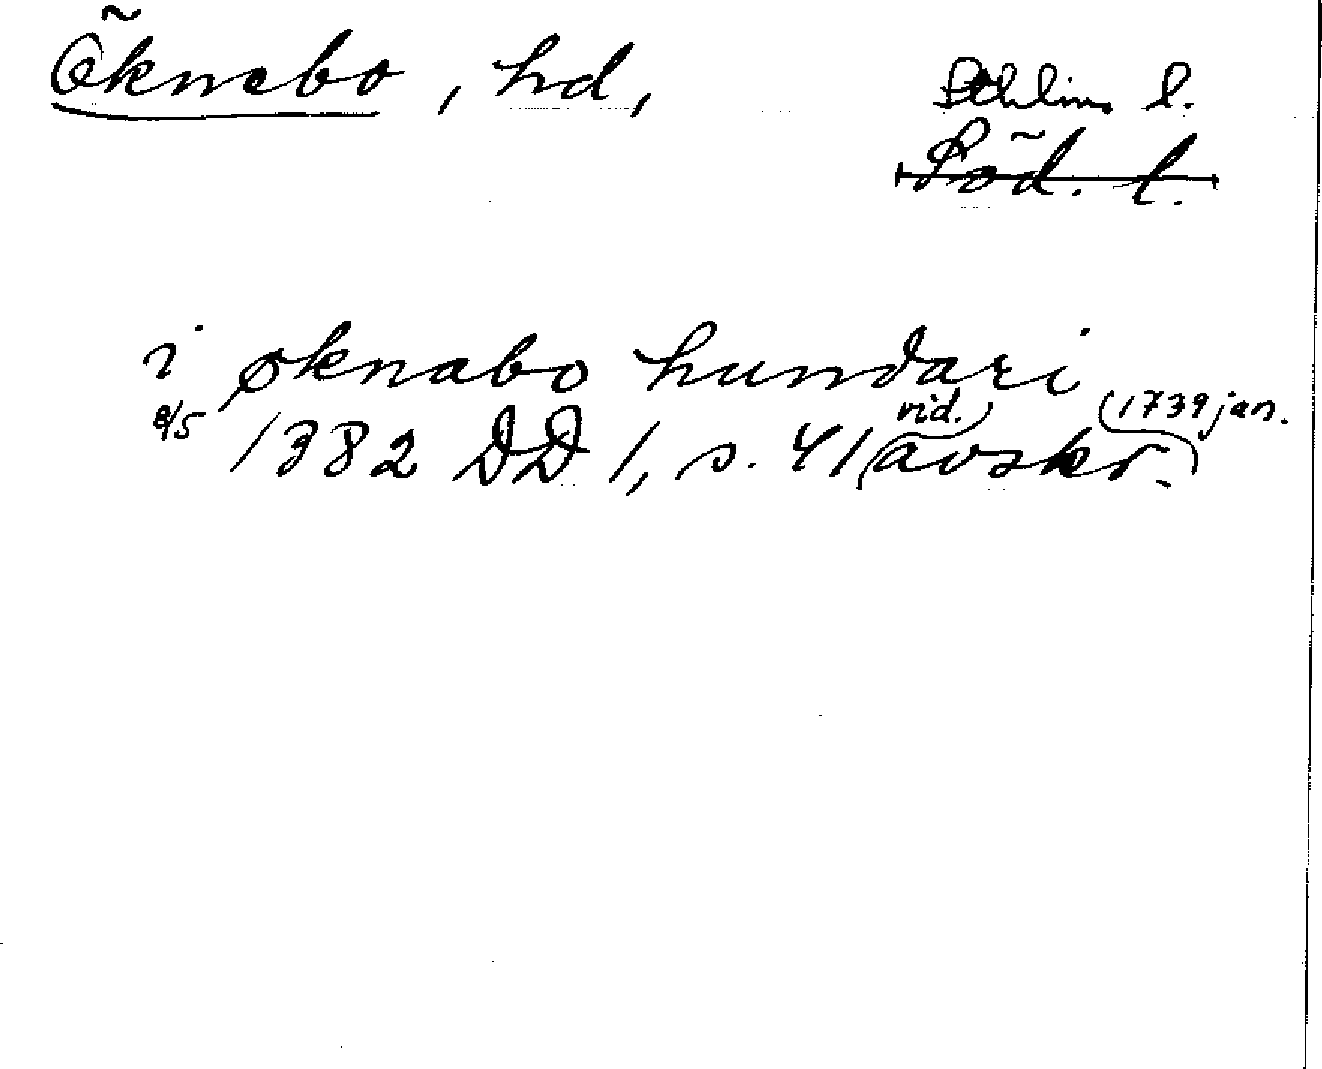 Öknebo, hd,
Sthlms l.
Söd. l.
i øknabo hundari
8/5 1382 DD 1, s. 41 (vid.) avskr. (1739 jan.)